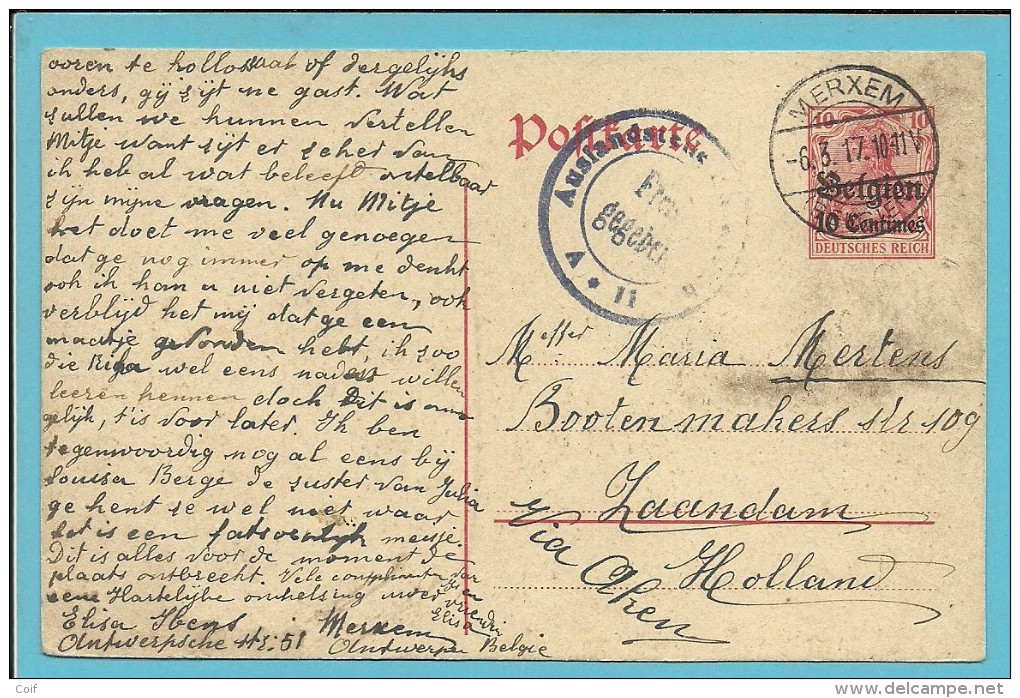 ooren te hollo aat of dergelijks
onders, gij zijt ne gast. Wat
zullen we kunnen vertellen
Mitje want zijt er zeker van
ik heb al wat beleeft
zijn mijne vragen. Nu Mitje
het doet me veel genoegen
dat ge nog immer op me denkt
ook ik kan u niet vergeten, ook
verblijd het mij dat ge een
maatje gevonden hebt, ik zoo
die wel eens willen
leeren kennen doch dit is onmo
gelijk, t'is voor later. Ik ben
tegenwoordig nog al eens bij
Louisa Berge de zuster van Julia
ge kent ze wel niet waar
het is een fatsoenlijk meisje.
Dit is alles voor de moment de
plaats ontbreekt. Vele complimenten van
eene Hartelijke omhelsing uwer
vriendin
Elisa
Elisa Hens
Antwerpsche str. 51
Merxem
Antwerpen Belgie
Postkarte
Auslands
Frei
gegeben
A * 11
MERXEM
-6.3.17.10-11V
10 10
Belgien
10 Centimes
DEUTSCHES REICH
Mejffer Maria Mertens
Booten makers str 109
Zaandam
Via Aken
Holland
Coif
delcampe.net